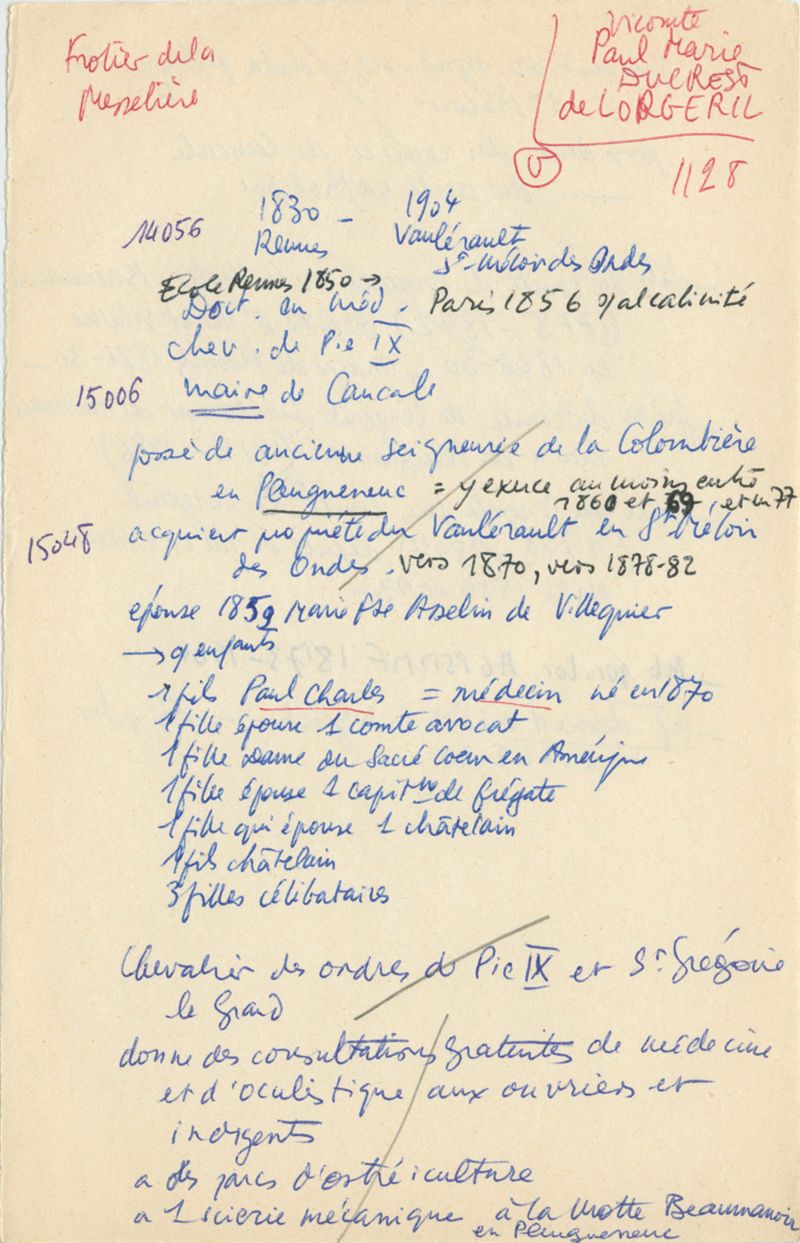 Frotier de la
Messelière
Vicomte
Paul Marie
DUCREST
de LORGERIL
V
1128
14056
1830 - 1904
Rennes Vaulérault
St Méloir des Ondes
Ecole Rennes 1850 →
Doct. en méd. Paris 1856 alcalinité
chev. de Pie IX
15006 maire de Cancale
possède ancienne seigneurie de la Colombière
en Pleugueneuc = y exerce au moins entre
1860 et 69 et en 77
15048 acquiert propriété du Vaulérault en St Méloir
des Ondes. vers 1870, vers 1878-82
épouse 1859 Marie Fse Asselin de Villequier
→ 9 enfants
1 fils Paul Charles = médecin né en 1870
1 fille épouse 1 comte avocat
1 fille Dame du Sacré Coeur en Amérique
1 fille épouse 1 capitne de frégate
1 fille qui épouse 1 châtelain
1 fils châtelain
3 filles célibataires
Chevalier des ordres de Pie IX et St Grégoire
le Grand
donne des consultations gratuites de médecine
et d'oculistique aux ouvriers et
indigents
a des parcs d'ostréiculture
a 1 scierie mécanique à la Motte Beaumanoir
en Pleugueneuc